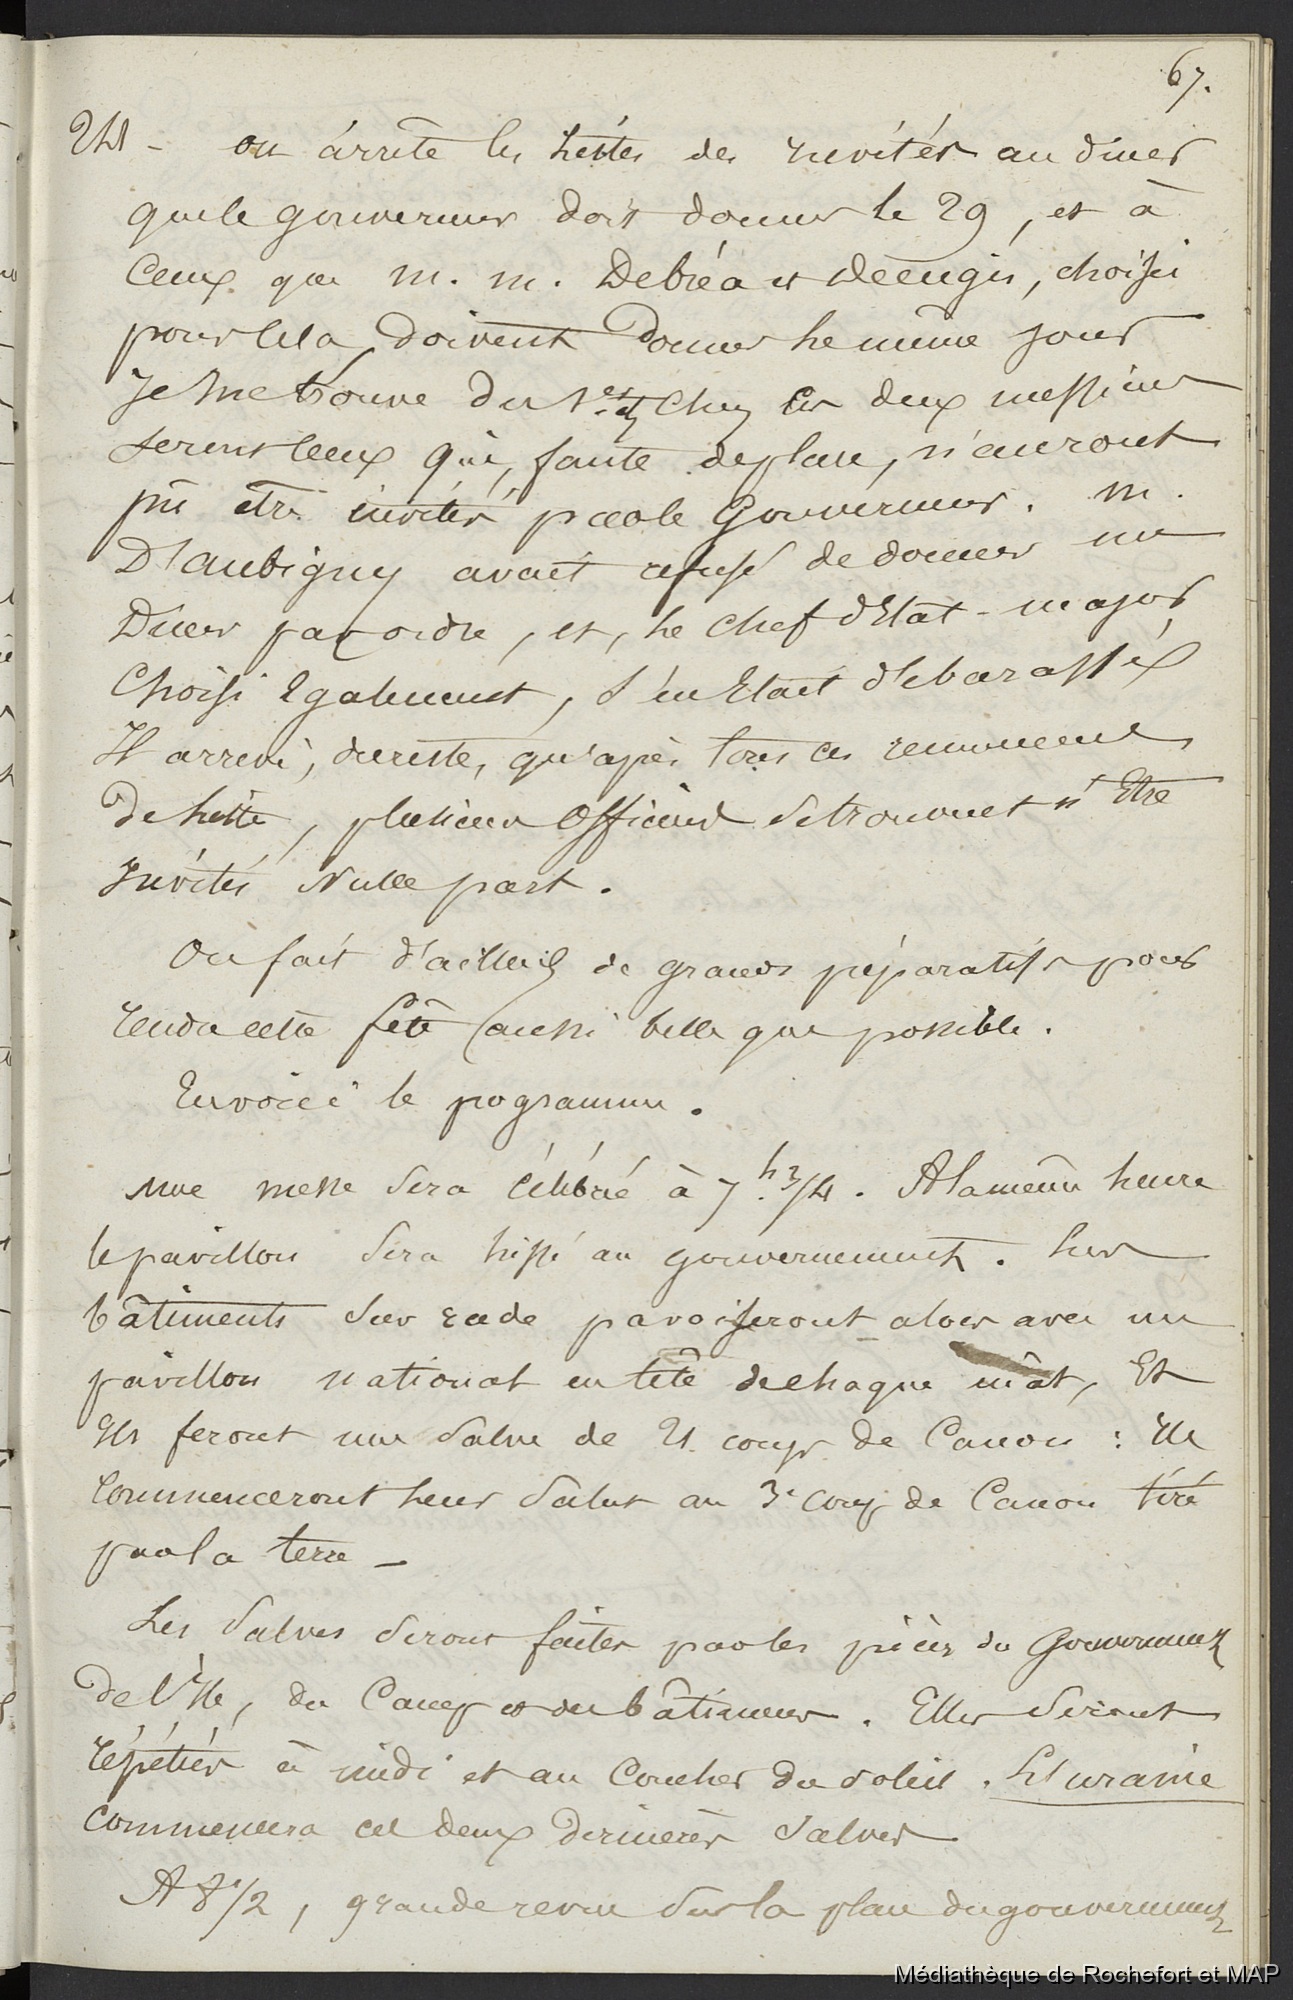 67.
24 - on arrête les listes des invités au diner
que le gouverneur doit donner le 29, et à
ceux que M. M. Debréa et Déengis, choisi
pour cela, doivent donner le même jour
Je me trouve du 1er et chez ces deux messieurs
seront ceux qui, faute de place, n'auront
pu être invités par le Gouverneur. M.
D'aubigny avait refusé de donner un
Diner par ordre, et, le chef d'Etat-major
Choisi Egalement, s'en Etait débarassé
Il arrivé, du reste, qu'après tous ces remuements
de liste, plusieurs Officiers se trouvent n'Etre
Invités Nulle part.
On fait d'ailleurs de grands préparatifs pour
rendre cette fête aussi belle que possible.
En voici le programme.
Une messe sera célébrée à 7h 3/4. A la même heure
le pavillon sera hissé au gouvernement. Les
bâtiments sur rade pavoiseront alors avec un
pavillon national en tête de chaque mât, Et
Ils feront une salve de 21 coups de Canon : Ils
Commenceront leur salut au 3e coup de Canon tiré
par la terre -
Les Salves seront faites par les pièces du Gouvernement
de l'Ile, du Camp et des bâtiments. Elles seront
répétées à midi et au coucher du soleil. L'Uranie
commencera ces deux dernières salves
A 8 1/2, grande revue sur la place du gouvernement
Médiathèque de Rochefort et MAP